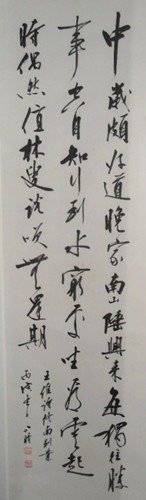 中歲頗好道晚家南山陲興來每獨往勝
事空自知行到水窮處坐看雲起
時偶然值林叟談咲無還期
王維詩終南別業
丙戌年